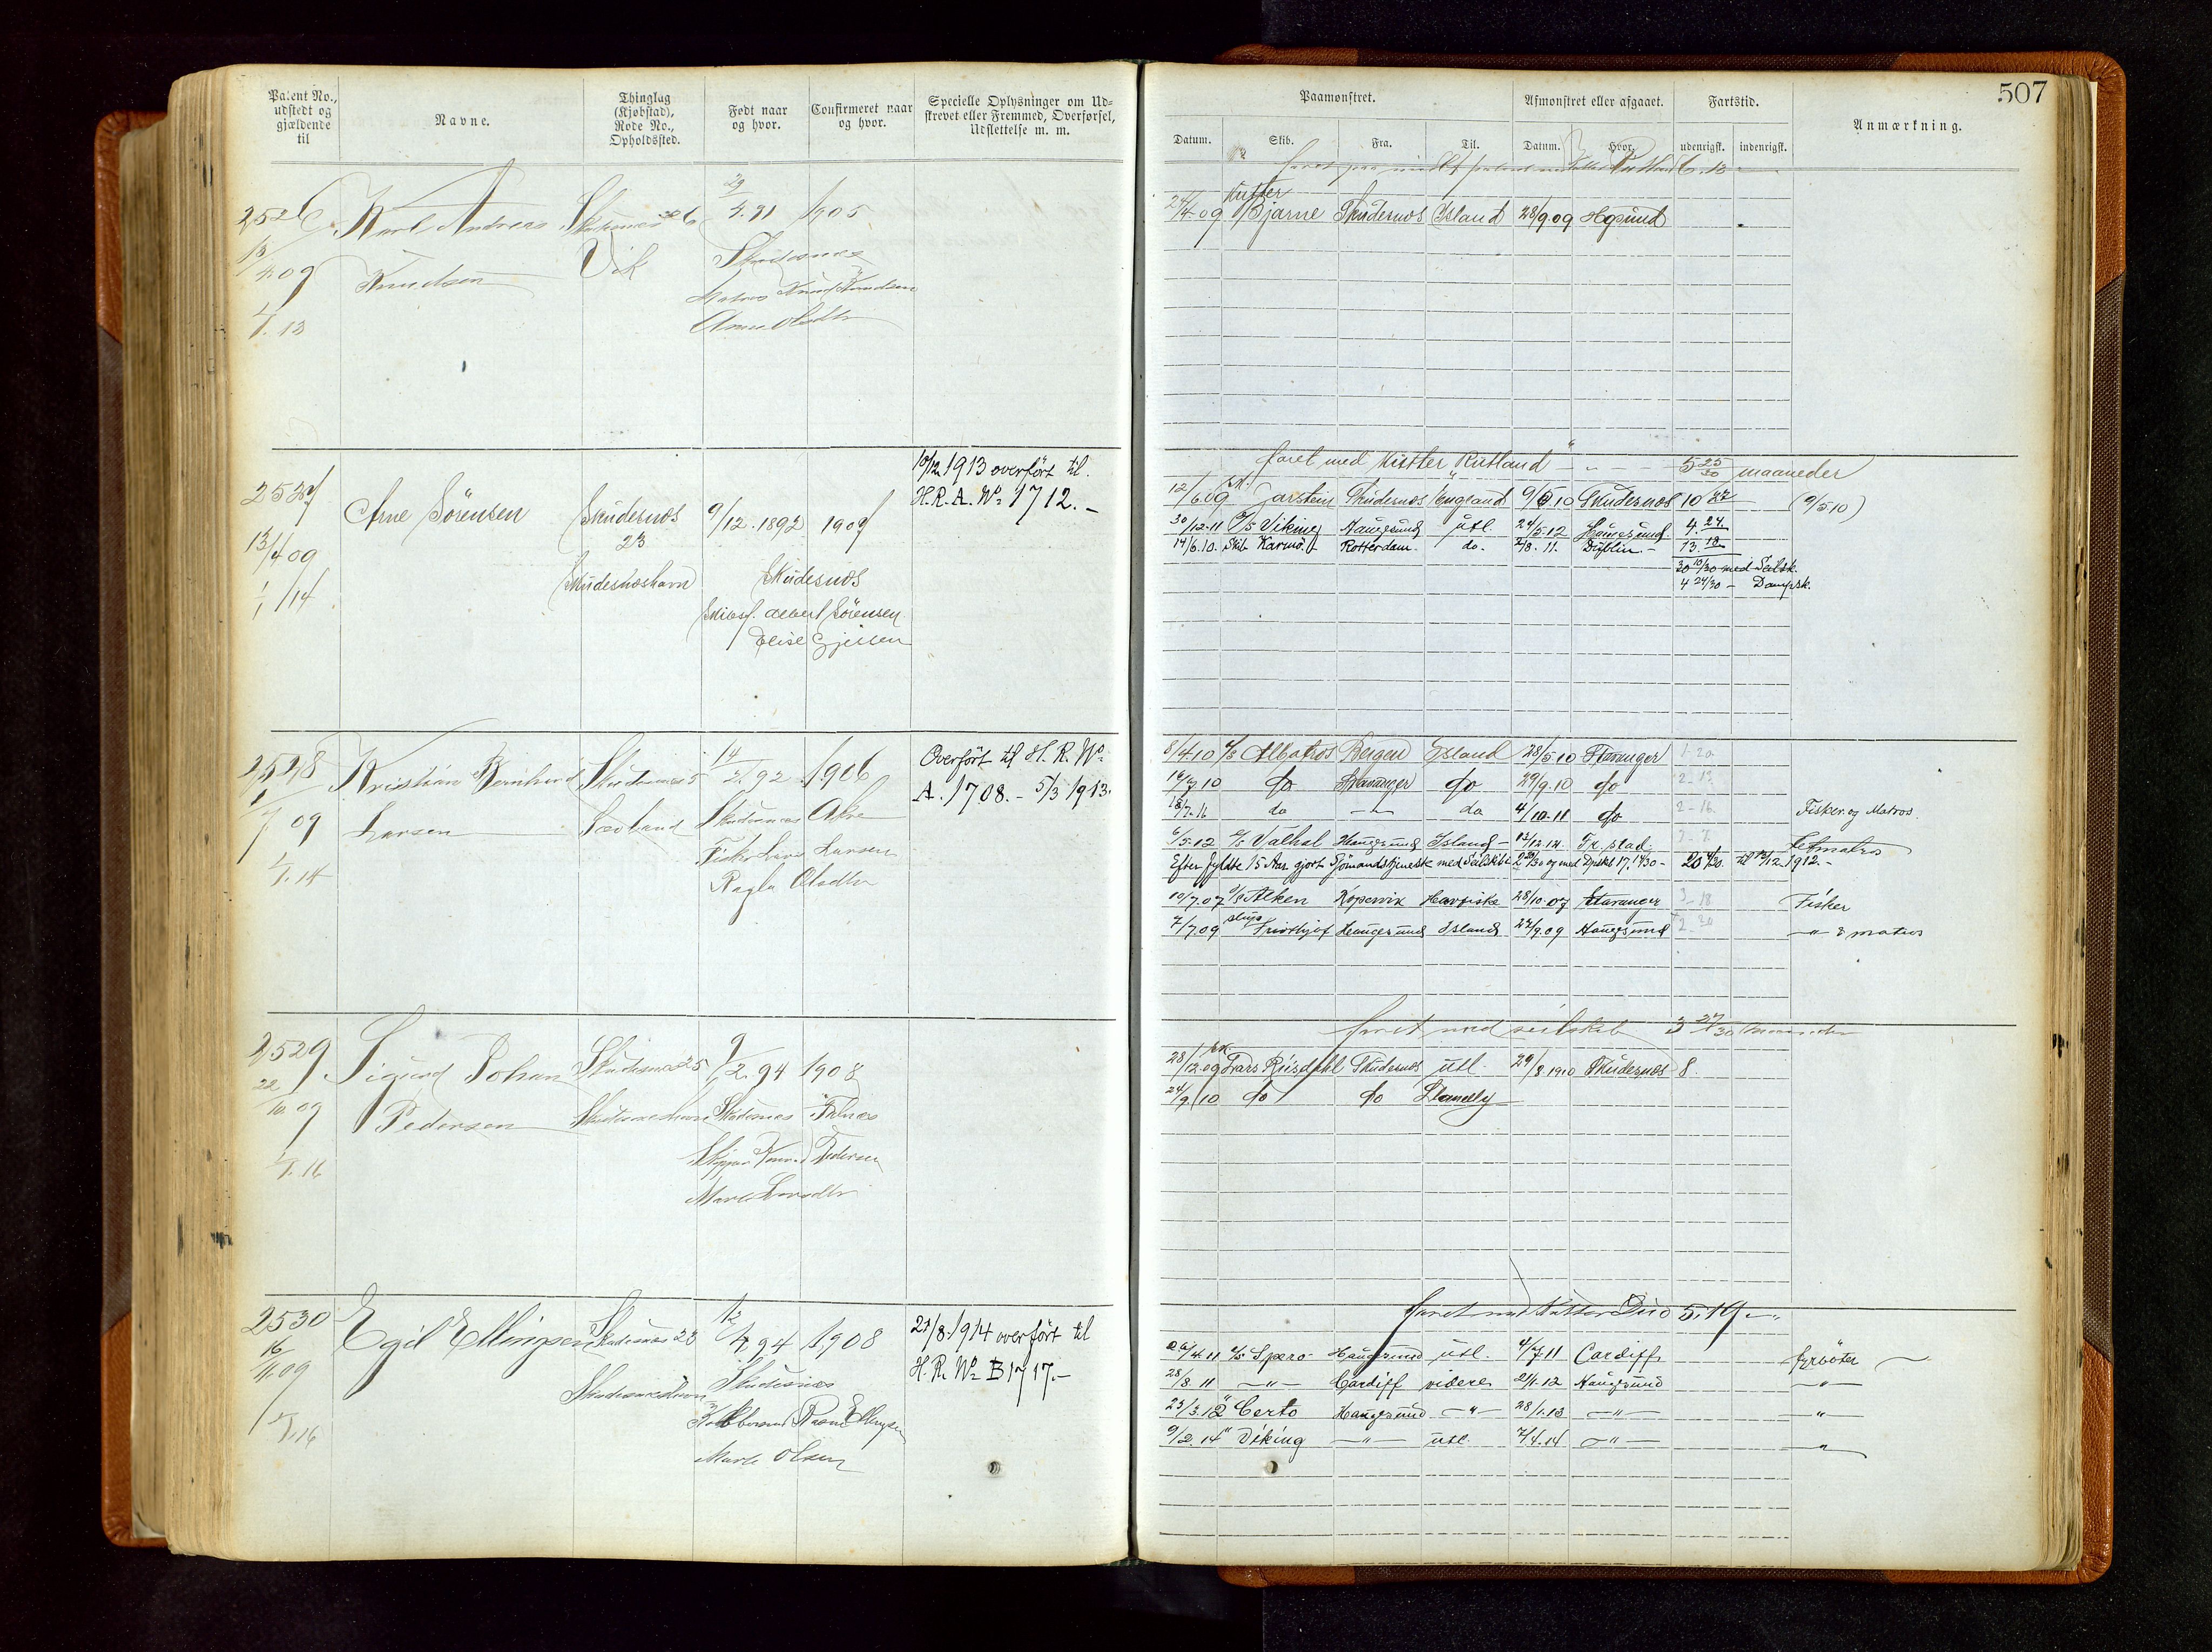 507
Patent No., udstedt og gjældende til
Navne.
Thinglag (Kjøbstad), Rode No., Opholdssted.
Født naar og hvor.
Confirmeret naar og hvor.
Specielle Oplysninger om Udskrevet eller Fremmed, Overførsel, Udslettelse m. m.
Paamønstret.
Afmønstret eller afgaaet.
Fartstid.
Anmærkning.
Datum. Skib. Fra. Til. Datum. Hvor. udenrigsk. indenrigsk.
2526 Karl Andreas Skudesnæs 26 29/4.91 1905
13/4 09 Knudsen Vik Skudesnæs
Matros Knud Knudsen
1/1.13 Anne Olsdtr
Kutter
24/4-09 Bjarne Skudesnæs Island 28/9 09 Hgsund
2527 Arne Sörensen Skudesnæs 9/12.1892 1907
23
13/4 09 Skudesnæshavn Skudesnæs
1/1 14 Skibsf. Albert Sörensen
Elise Gjelsen
10/12 1913 overført til
H.R.A. No 1712.-
faret med Kutter "Rutland" - " 5 25/30 maaneder
12/6.09 Jarstein Skudesnæs England 9/5 10 Skudesnæs 10 27 (9/5 10)
30/12.11 D/S Viking Haugesund utl. 24/5.12 Haugesund 4.24
14/6.10. Skib Karmö. Rotterdam. do. 2/8.11. Dublin - 13.18
30 10/30 med Seilsk.
4 24/30 - Dampsk.
2528 Kristian Bernhard Skudesnæs 5 14/2.92 1906
1/7 09 Larsen Sævland Skudesnæs Akre
Fisker Lars Larsen
1/1.14 Ragla Olsdtr
Overført til H. R. No
A. 1708.- 5/3 1913.
8/4 10 Albatros Bergen Island 28/5.10 Stavanger 1-20.
16/7 10 do Stavanger do 29/9.10 do 2-13
18/7.11 do -"- do 4/10.11 do 2-16. Fisker og Matros.
6/5.12 Valhal Haugesund Island - 13/12.12 Fr.stad 7-7. Letmatros
Efter fyldte 15 Aar gjort Sjömandstjeneste med Seilskib
10/7.07 Alken Kopervik Havfiske 28/10.07 Stavanger 3-18 Fisker
7/7.09 Fridthjof Haugesund Island 27/9.09 Haugesund 2-20 -"- & matros
2529 Sigurd Johan Skudesnæs 25 9/2.94 1908
22/10 09 Pedersen Skudesnæshavn Skudesnæs Falnæs
Skipper Konrad Pedersen
1/1.16 Marta Larsdtr
faret med seilskib 3 27/30 maaneder
28/12.09 Frars Ruisdahl Skudesnæs utl. 29/8.1910 Skudesnæs 8.
24/9 10 do do Llanelly
2530 Egil Ellingsen Skudesnæs 23 12/4 94 1908
16/11.09 Skudesnæshavn Skudesnæs
1/1.16 Marta Olsen
21/8.1914 overført til
H.R. No B 1717.-
faret med Kutter Duo 5.19 -"-
26/4.11 D/S Spero Haugesund utl. 4/7.11 Cardiff fyrböter
28/8.11 -"- Cardiff videre 2/1.12 Haugesund -"-
23/3.12 " Certo Haugesund -"- 28/1.13 -"- -"-
9/2.14 " Viking -"- utl. 7/4.14 -"- "